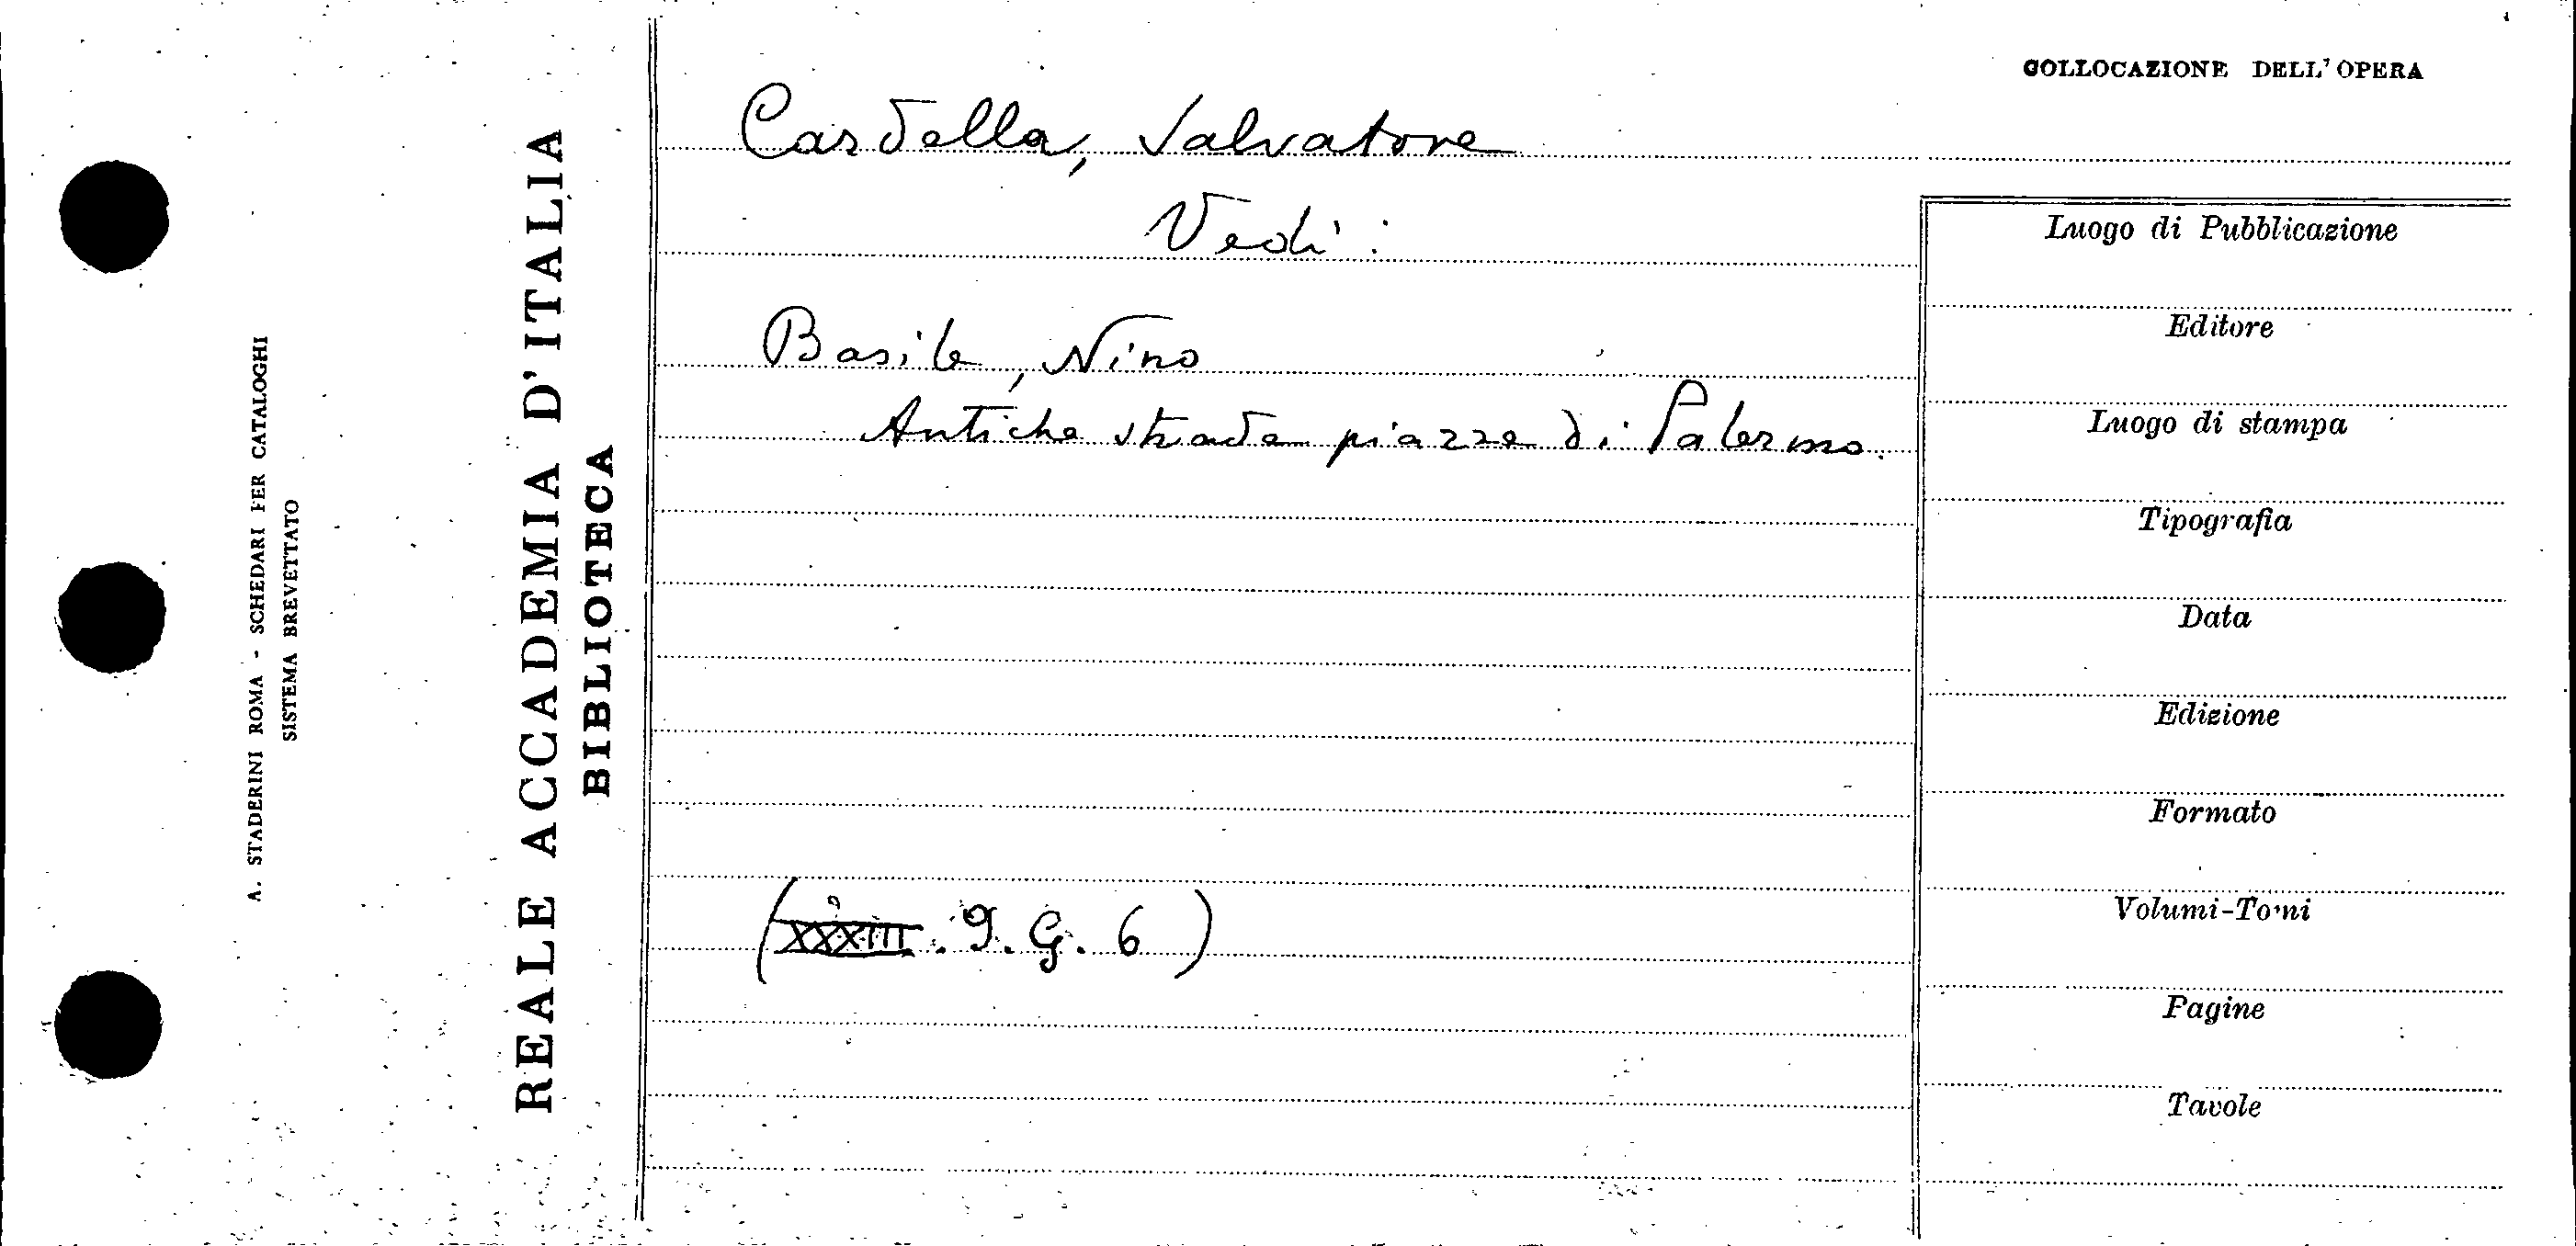 COLLOCAZIONE DELL'OPERA
Cardella, Salvatore
Vedi:
Basile, Nino
Antiche strade piazze di Palermo.
(XXXIII. 9. G. 6)
REALE ACCADEMIA D'ITALIA
BIBLIOTECA
A. STADERINI ROMA - SCHEDARI PER CATALOGHI
SISTEMA BREVETTATO
Luogo di Pubblicazione
Editore
Luogo di stampa
Tipografia
Data
Edizione
Formato
Volumi-Tomi
Pagine
Tavole